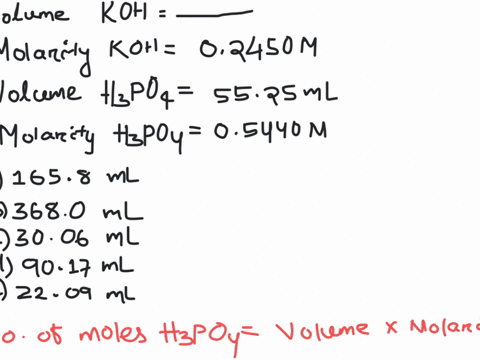 olume KOH = ______
Molarity KOH = 0.2450 M
Volume H₃PO₄ = 55.25 mL
Molarity H₃PO₄ = 0.5440 M
) 165.8 mL
) 368.0 mL
) 30.06 mL
) 90.17 mL
) 22.09 mL
o. of moles H₃PO₄ = Volume × Molar